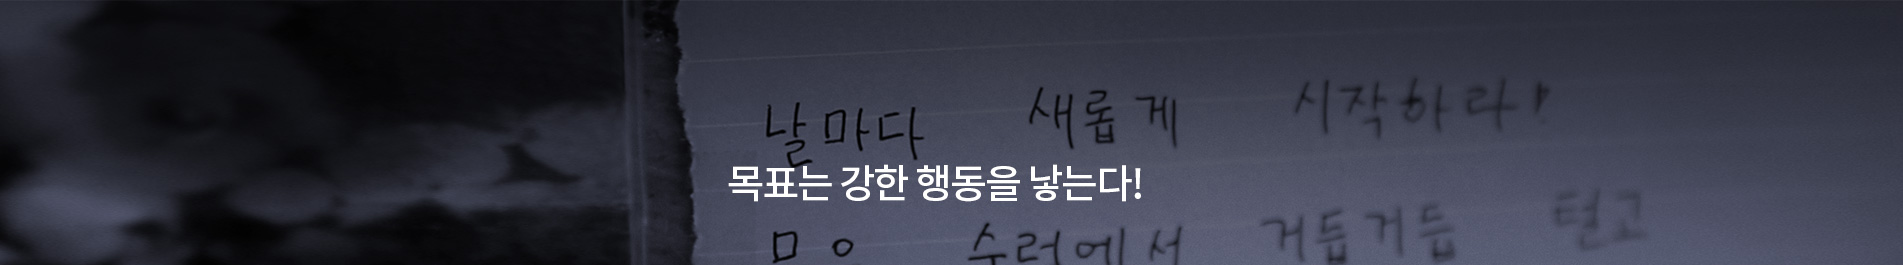 날마다 새롭게 시작하라!
목표는 강한 행동을 낳는다!
수렁에서 거듭거듭 털고